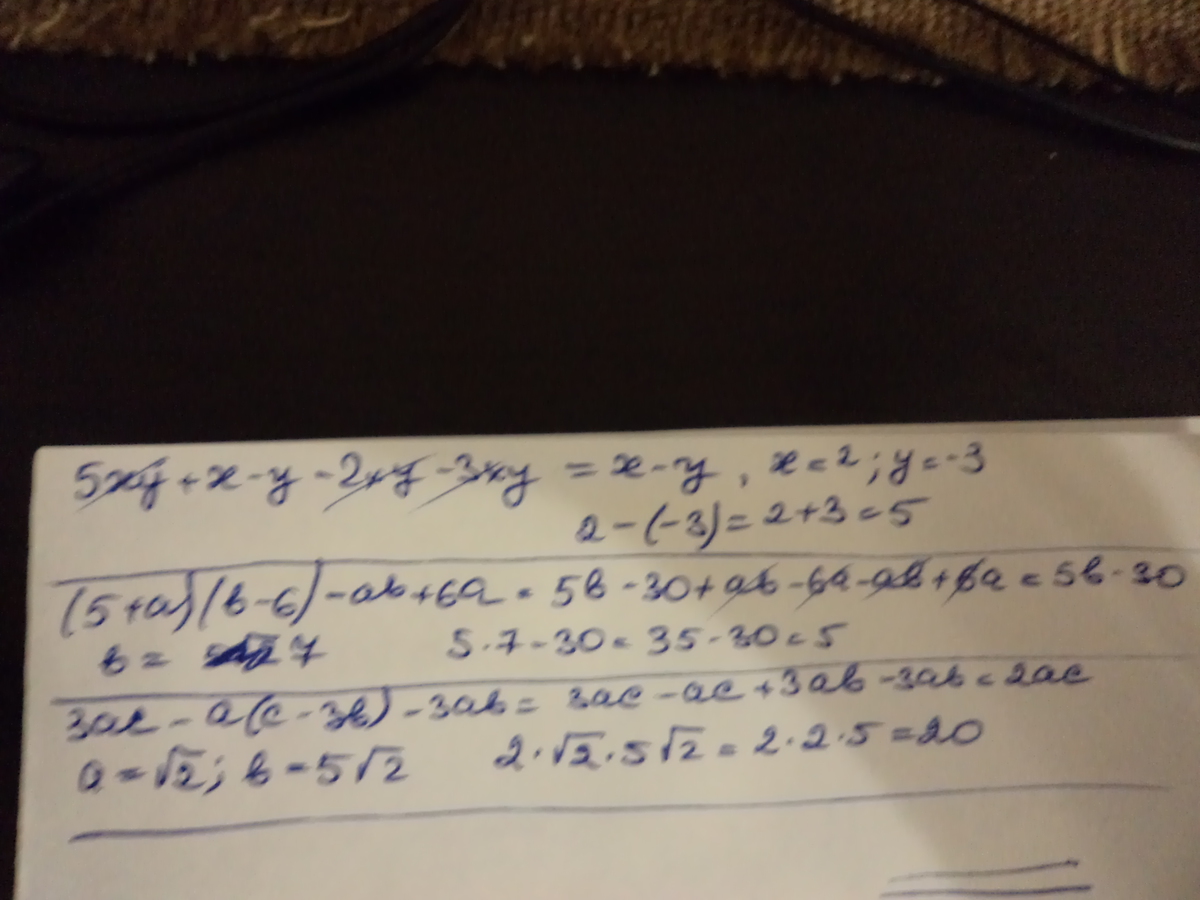 5xy + x - y - 2xy - 3xy = x - y, x = 2; y = -3
2 - (-3) = 2 + 3 = 5
(5 + a)(b - 6) - ab + 6a = 5b - 30 + ab - 6a - ab + 6a = 5b - 30
b = 7 5 · 7 - 30 = 35 - 30 = 5
3ac - a(c - 3b) - 3ab = 3ac - ac + 3ab - 3ab = 2ac
a = √2; b = 5√2 2 · √2 · 5√2 = 2 · 2 · 5 = 20